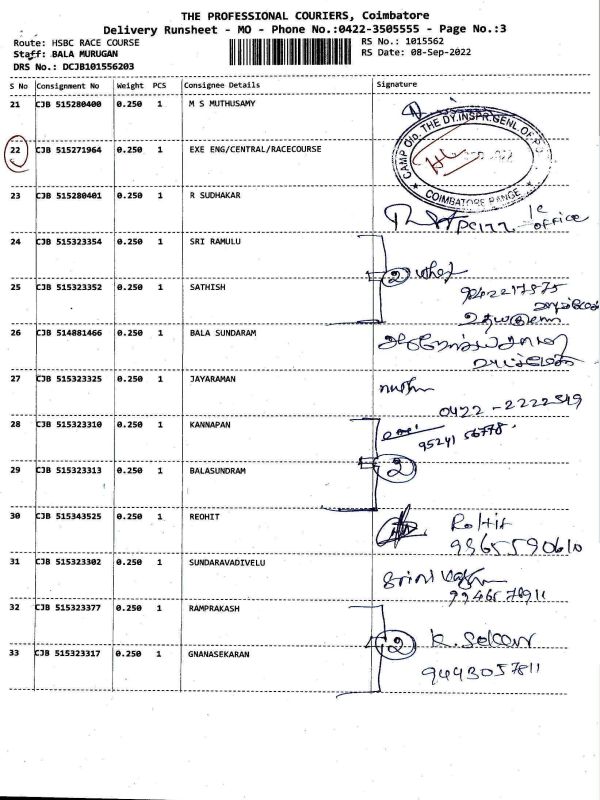 THE PROFESSIONAL COURIERS, Coimbatore
Delivery Runsheet - MO - Phone No.:0422-3505555 - Page No.:3
Route: HSBC RACE COURSE
RS No.: 1015562
Staff: BALA MURUGAN
RS Date: 08-Sep-2022
DRS No.: DCJB101556203
S No Consignment No Weight PCS Consignee Details Signature
21 CJB 515280400 0.250 1 M S MUTHUSAMY
CAMP O/o. THE DY.INSPR.GENL.OF
COIMBATORE RANGE
22 CJB 515271964 0.250 1 EXE ENG/CENTRAL/RACECOURSE
23 CJB 515280401 0.250 1 R SUDHAKAR
office
24 CJB 515323354 0.250 1 SRI RAMULU
2
25 CJB 515323352 0.250 1 SATHISH
9842217875
26 CJB 514881466 0.250 1 BALA SUNDARAM
27 CJB 515323325 0.250 1 JAYARAMAN
0422 - 2222549
28 CJB 515323310 0.250 1 KANNAPAN
95241 56778
29 CJB 515323313 0.250 1 BALASUNDRAM
2
30 CJB 515343525 0.250 1 REOHIT
Rohit
9365590610
31 CJB 515323302 0.250 1 SUNDARAVADIVELU
32 CJB 515323377 0.250 1 RAMPRAKASH
2
33 CJB 515323317 0.250 1 GNANASEKARAN
9443057811